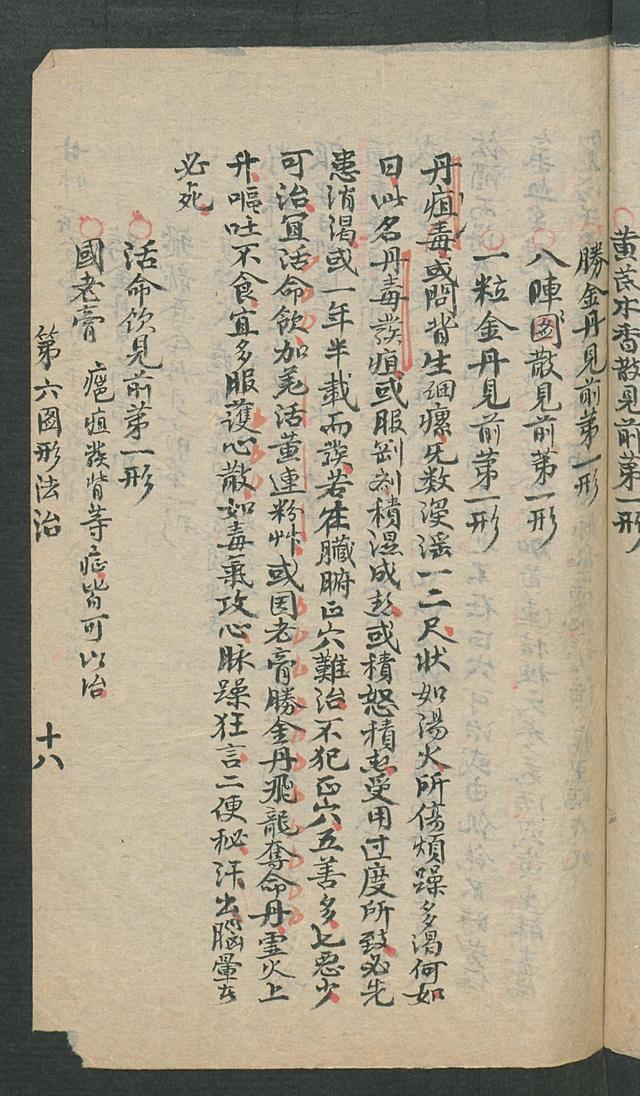 黄芪木香散見前第一形
勝金丹見前第一形
八陣圖散見前第一形
一粒金丹見前第一形
丹疽毒或問背生細瘰死数漫滛一二尺状如湯火所傷煩躁多渴何如
曰此名丹毒發疽或服剛剂積濕成或積怒積受用过度所致必先
患消渴或一年半载而發若在臟腑正穴難治不犯正穴五善多七惡少
可治宜活命飲加羗活黄連粉艸或囯老膏勝金丹飛龍奪命丹灵火上
升嘔吐不食宜多服護心散如毒氣攻心脉躁狂言二便秘汗出腦暈者
必死
活命飲見前第一形
國老膏 癰疽發背等症皆可以治
第六圖形法治
十八